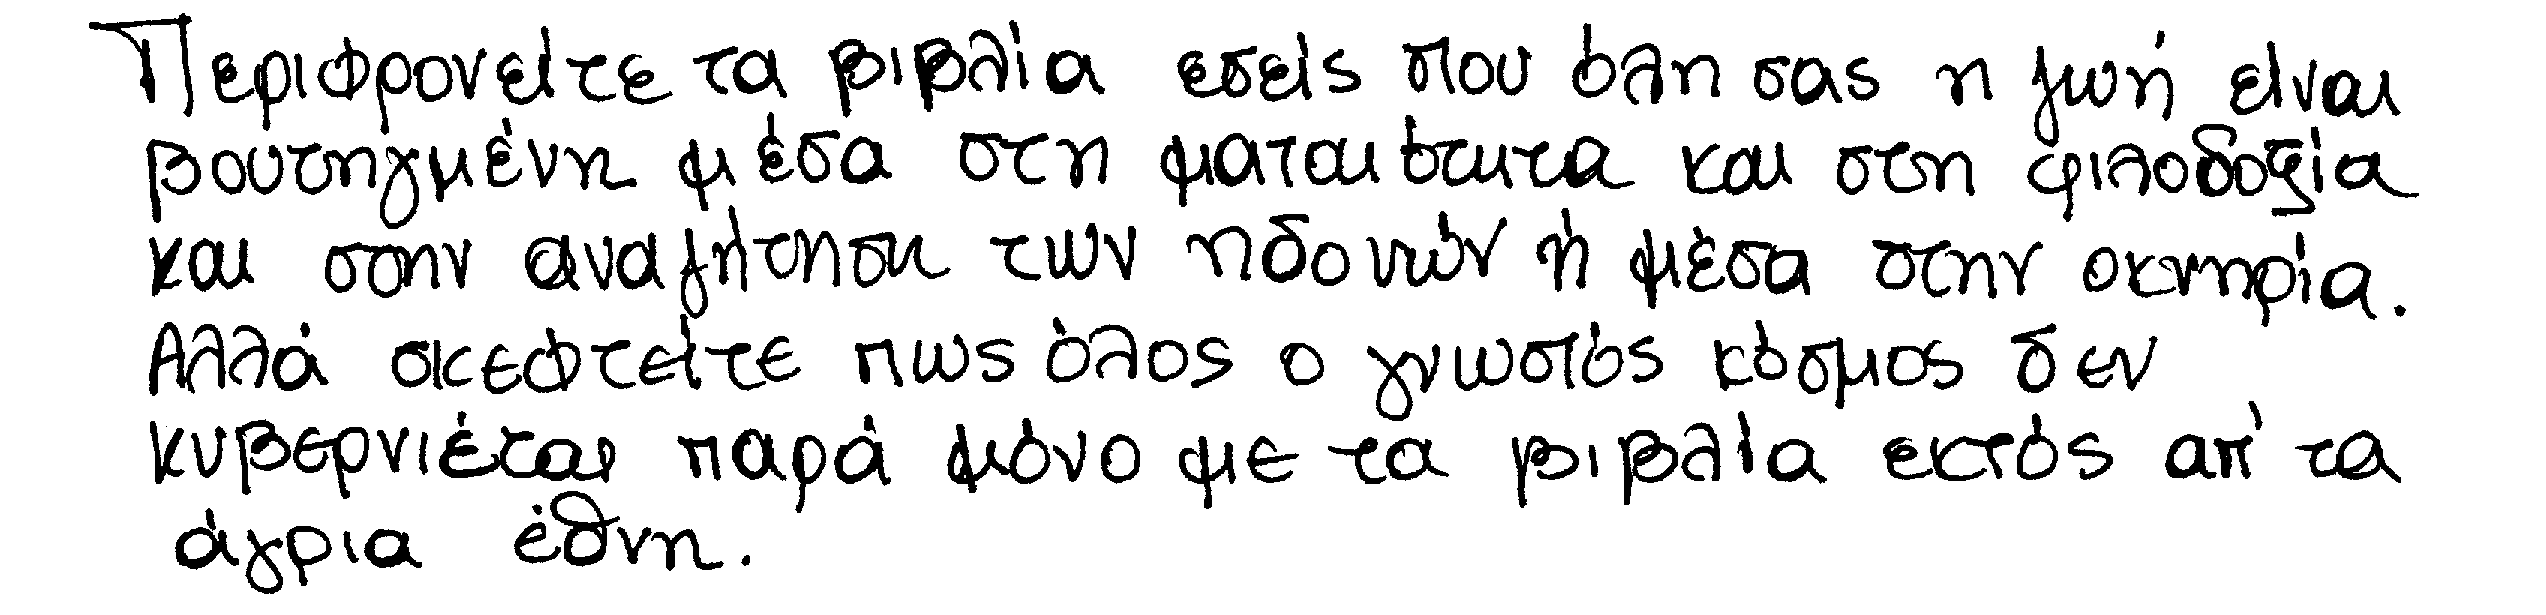 Περιφρονείτε τα βιβλία εσείς που όλη σας η ζωή είναι
βουτηγμένη μέσα στη ματαιότητα και στη φιλοδοξία
και στην αναζήτηση των ηδονών ή μέσα στην οκνηρία.
Αλλά σκεφτείτε πως όλος ο γνωστός κόσμος δεν
κυβερνιέται παρά μόνο με τα βιβλία εκτός απ' τα
άγρια έθνη.